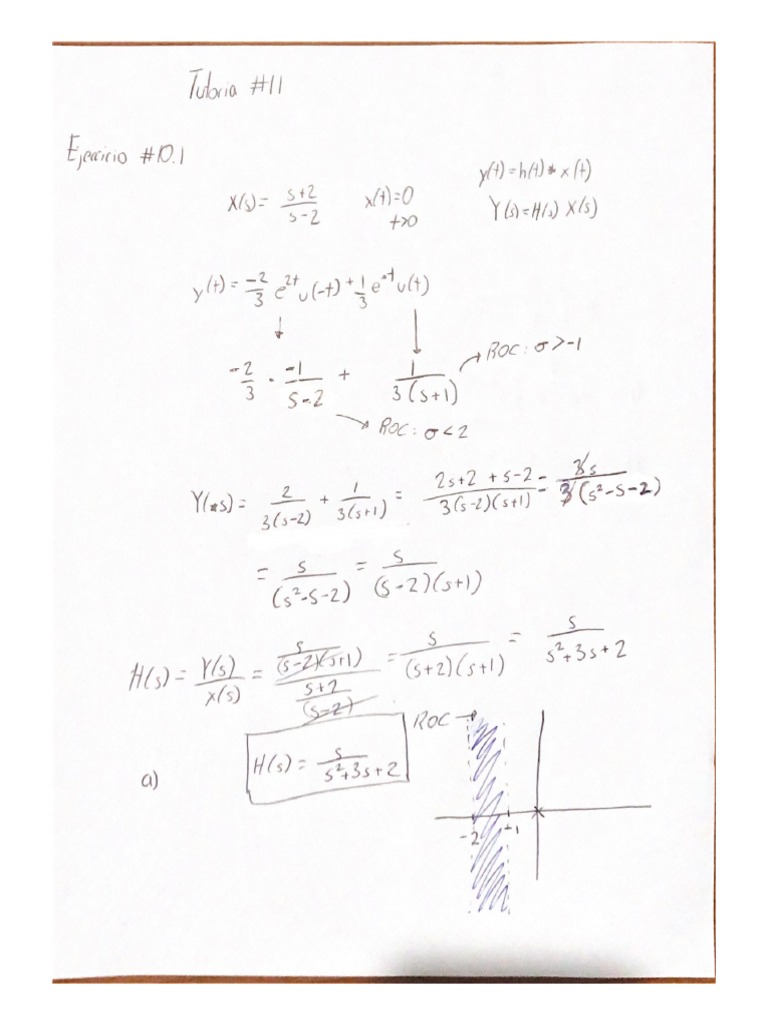 Tutoria #11
Ejercicio #10.1
X(s) = (s+2)/(s-2)   x(t)=0   y(t)=h(t)* x(t)
t>0   Y(s)=H(s) X(s)
y(t) = -2/3 e^2t u(-t) + 1/3 e^-t u(t)
-2/3 · -1/(s-2) + 1/(3(s+1))   ROC: σ>-1
ROC: σ<2
Y(s) = 2/(3(s-2)) + 1/(3(s+1)) = (2s+2 + s-2)/(3(s-2)(s+1)) = 3s/(3(s²-s-2))
= s/(s²-s-2) = s/((s-2)(s+1))
H(s) = Y(s)/X(s) = (s/((s-2)(s+1)))/((s+2)/(s-2)) = s/((s+2)(s+1)) = s/(s²+3s+2)
ROC
a)   H(s) = s/(s²+3s+2)
-2   -1